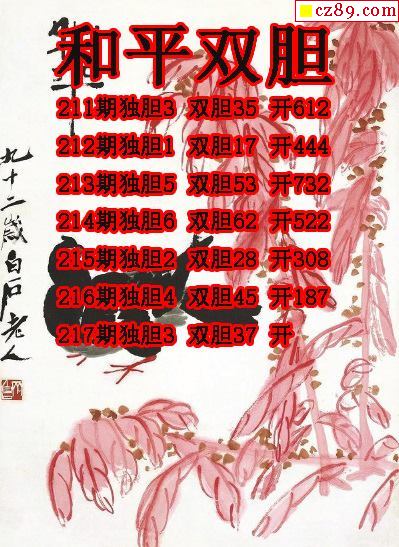 cz89.com
和平双胆
211期独胆3 双胆35 开612
212期独胆1 双胆17 开444
213期独胆5 双胆53 开732
214期独胆6 双胆62 开522
215期独胆2 双胆28 开308
216期独胆4 双胆45 开187
217期独胆3 双胆37 开
九十二岁白石老人